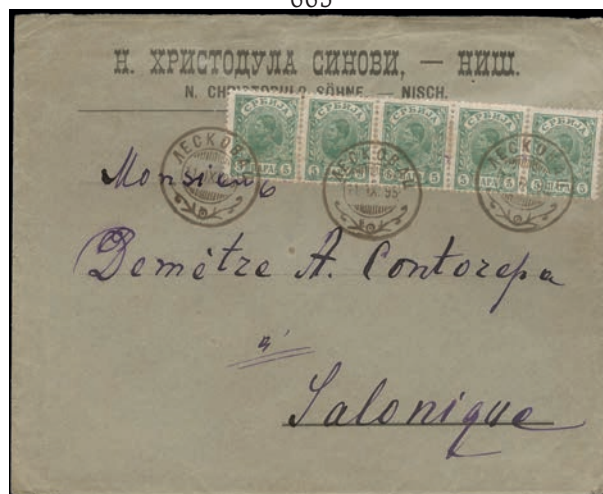 665
Н. ХРИСТОДУЛА СИНОВИ, — НИШ.
N. CHRISTODULO SÖHNE, — NISCH.
СРБИЈА СРБИЈА СРБИЈА СРБИЈА СРБИЈА
5 ПАРА 5 5 ПАРА 5 5 ПАРА 5 5 ПАРА 5 5 ПАРА 5
ЛЕСКОВАЦ ЛЕСКОВАЦ ЛЕСКОВАЦ
Monsieur
Demètre A. Contorepa
a'
Salonique